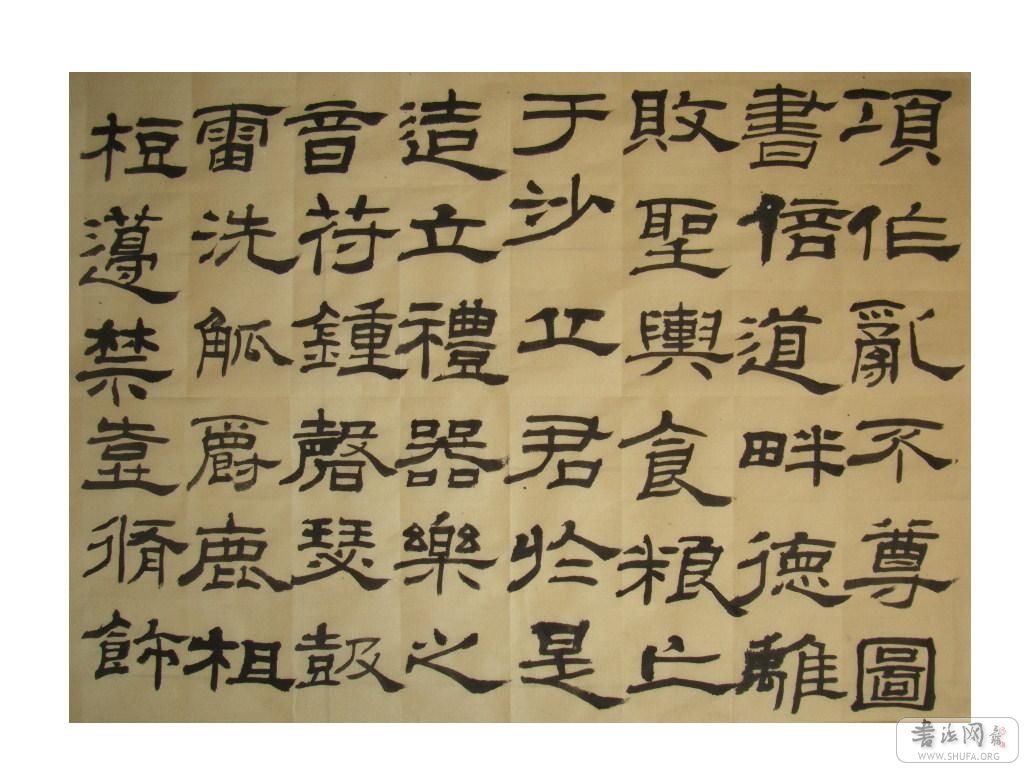 項作亂不尊圖
書倍道畔德離
敗聖輿食粮亡
于沙丘君於是
造立禮器樂之
音苻鍾磬瑟鼓
雷洗觚爵鹿柤
梪籩禁壺脩飾
书法网
WWW.SHUFA.ORG